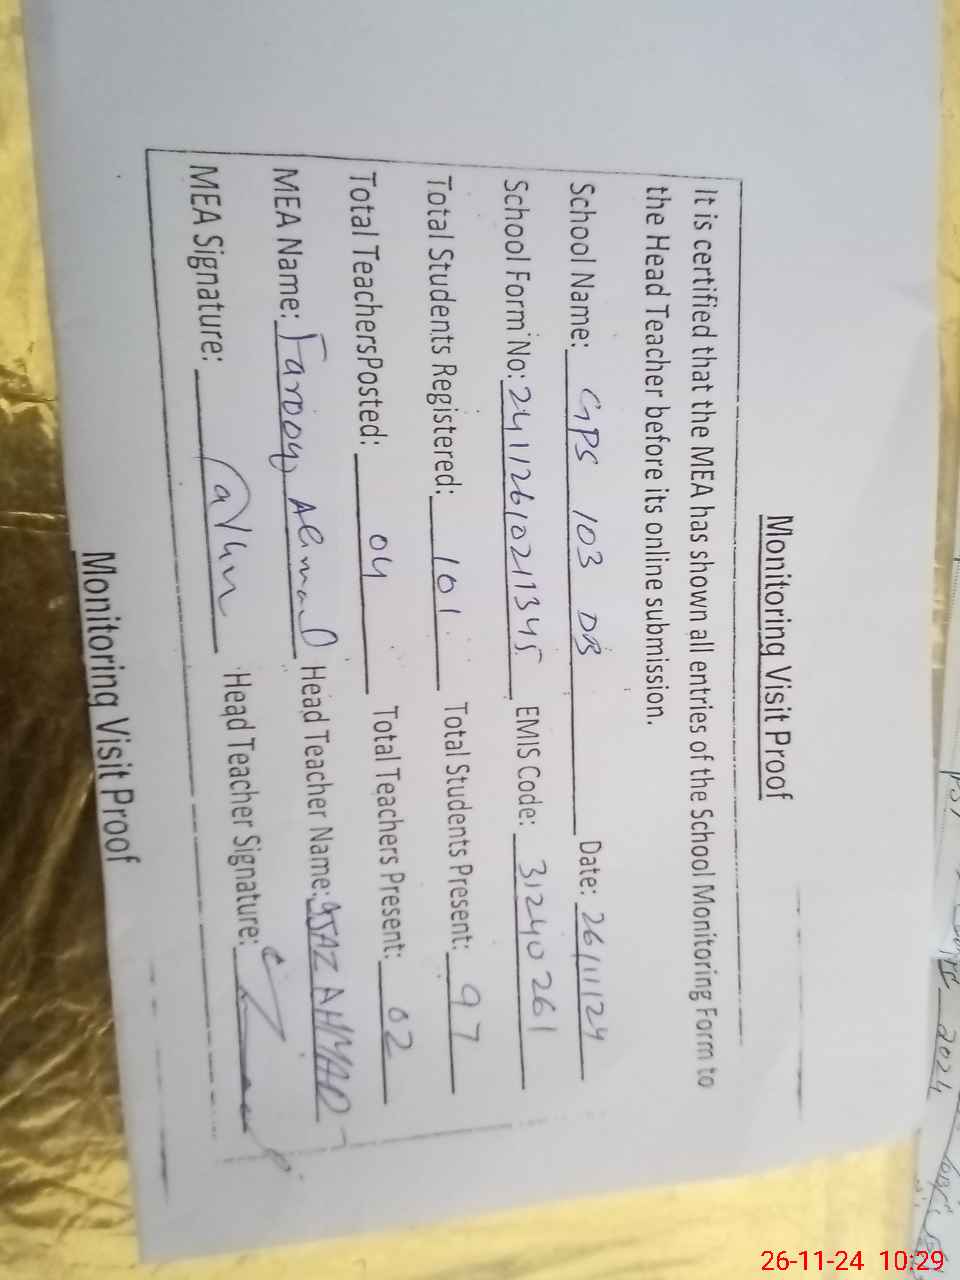 Monitoring Visit Proof
It is certified that the MEA has shown all entries of the School Monitoring Form to
the Head Teacher before its online submission.
School Name: GPS 103 DB Date: 26/11/24
School Form No: 24112610211345 EMIS Code: 31240261
Total Students Registered: 101 Total Students Present: 97
Total TeachersPosted: 04 Total Teachers Present: 02
MEA Name: Farooq Ahmad Head Teacher Name: IJAZ AHMAD
MEA Signature: Head Teacher Signature:
Monitoring Visit Proof
2024
26-11-24 10:29